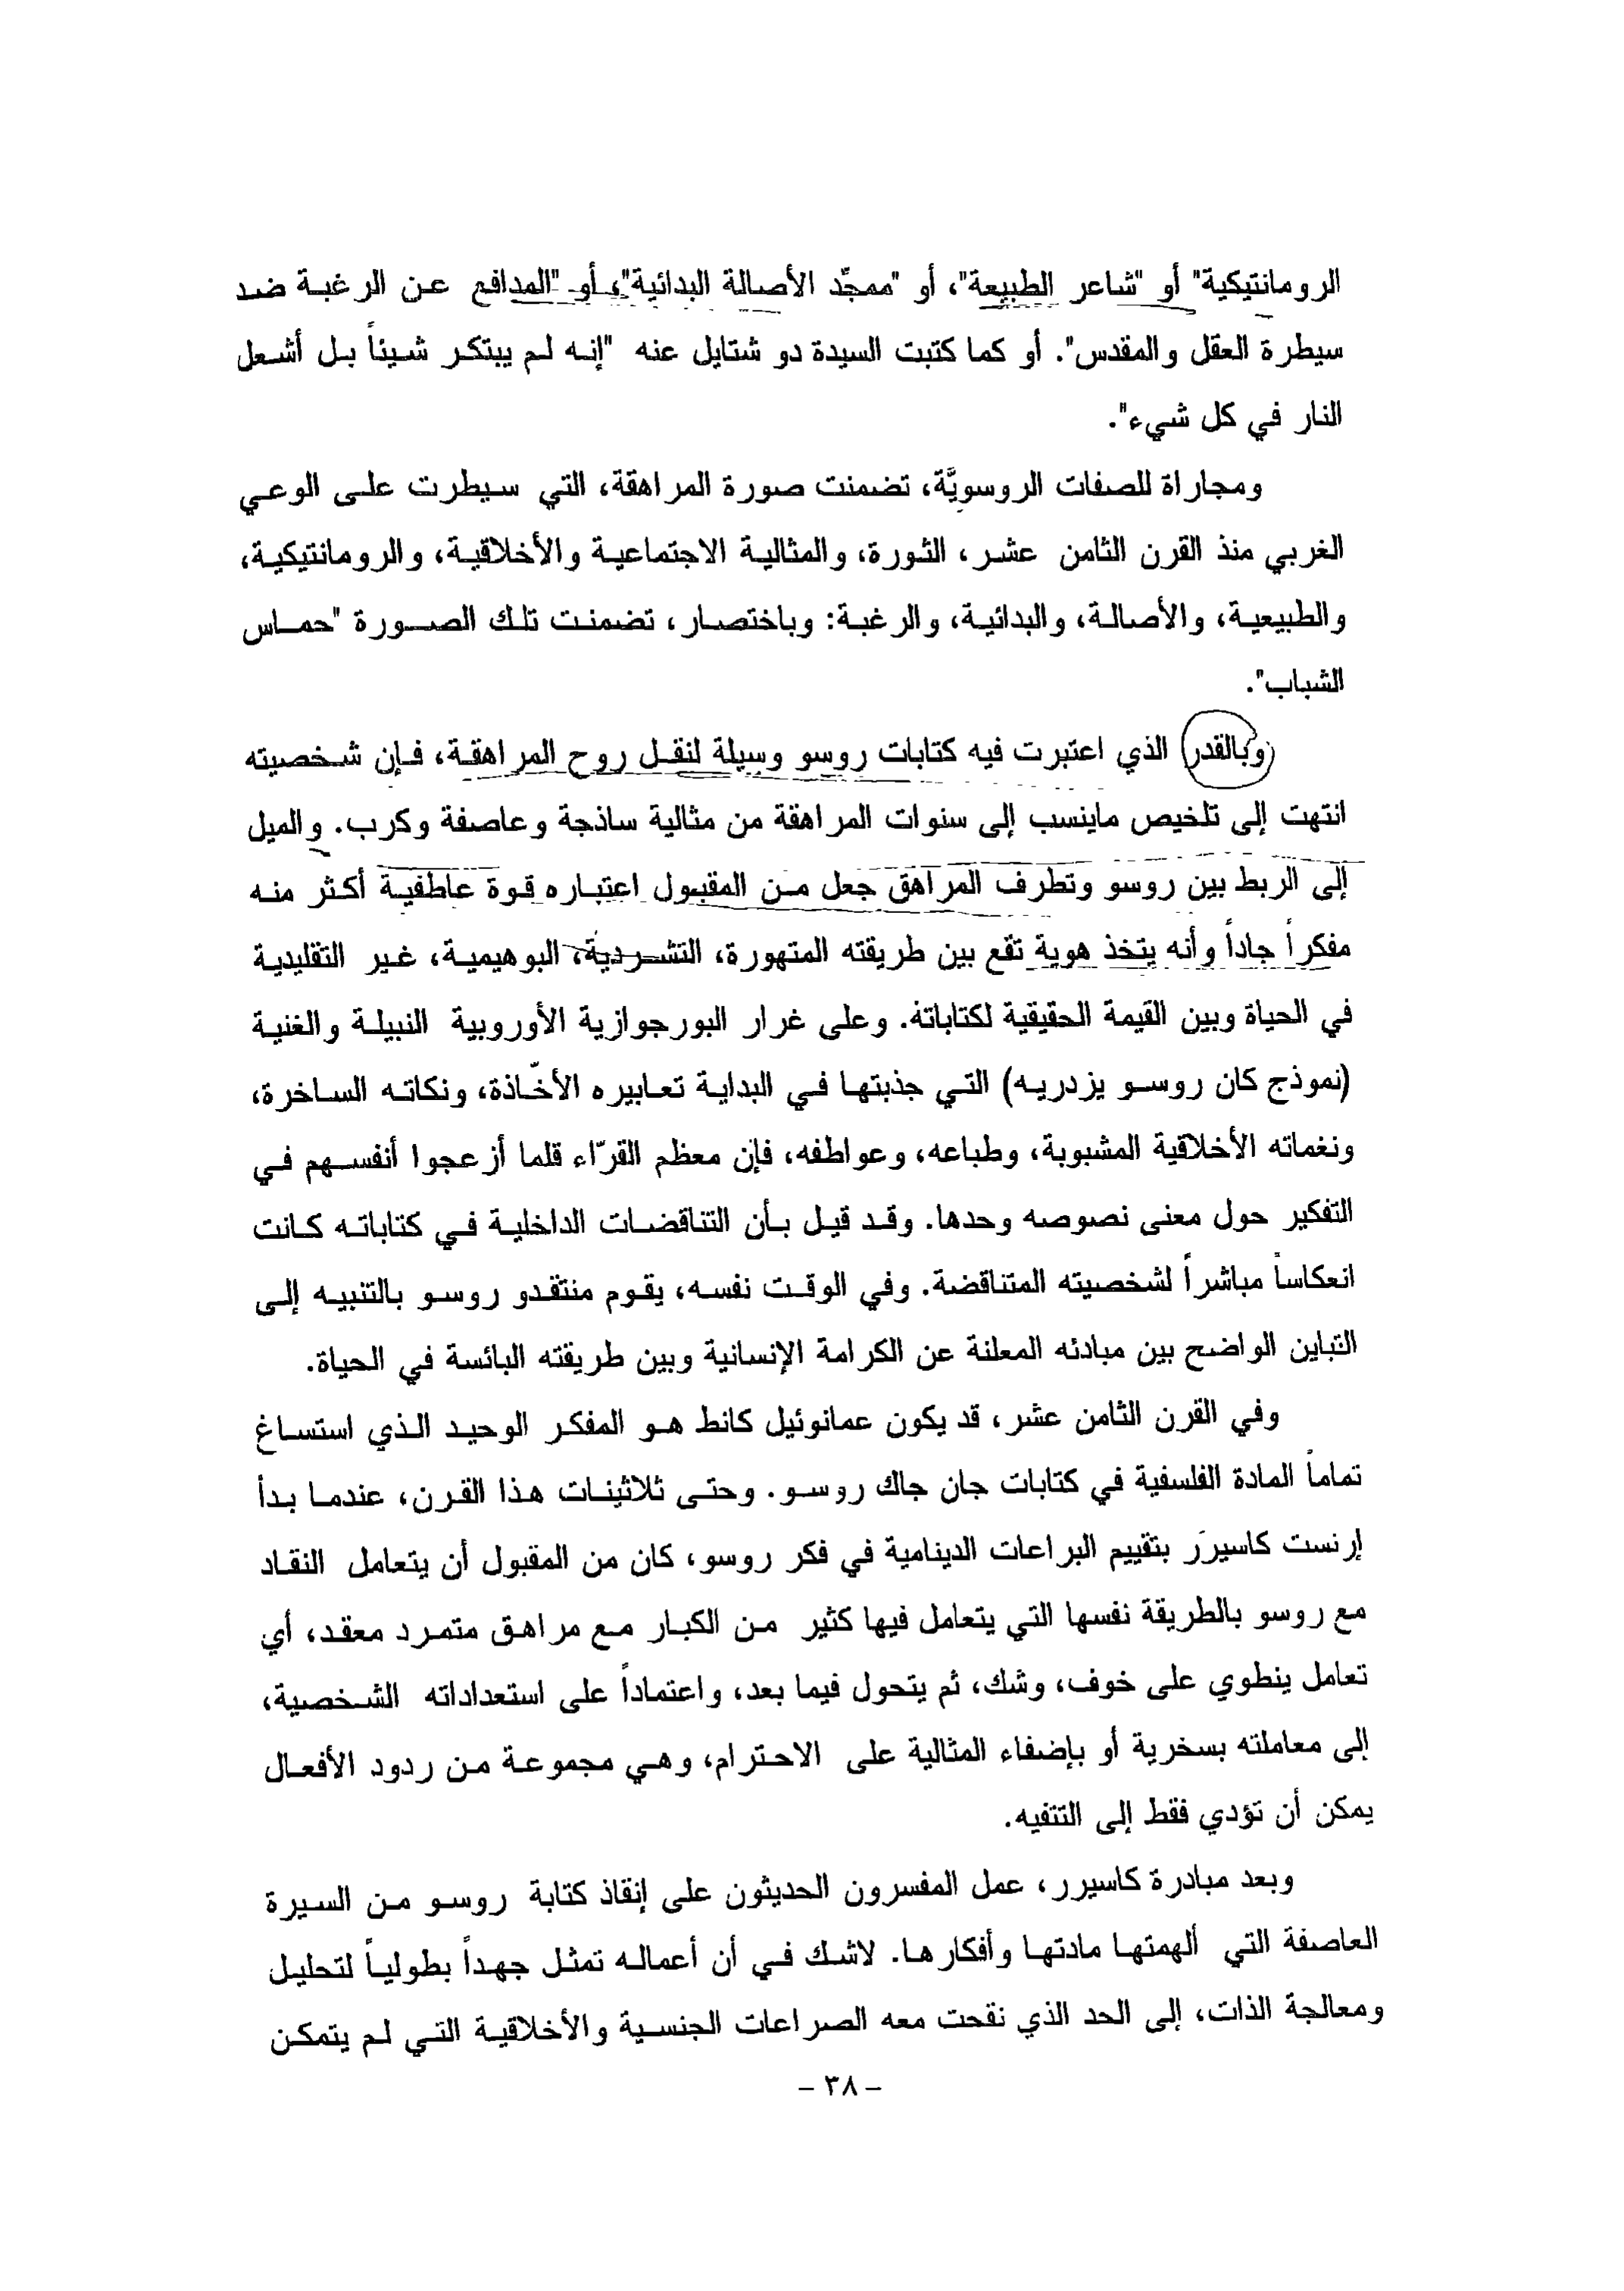 الرومانتيكية" أو "شاعر الطبيعة"، أو "ممجّد الأصالة البدائية"، أو "المدافع عن الرغبة ضد
سيطرة العقل والمقدس". أو كما كتبت السيدة دو شتايل عنه "إنه لم يبتكر شيئاً بل أشعل
النار في كل شيء".
ومجاراة للصفات الروسويَّة، تضمنت صورة المراهقة، التي سيطرت على الوعي
الغربي منذ القرن الثامن عشر، الثورة، والمثالية الاجتماعية والأخلاقية، والرومانتيكية،
والطبيعية، والأصالة، والبدائية، والرغبة: وباختصار، تضمنت تلك الصورة "حماس
الشباب".
وبالقدر الذي اعتبرت فيه كتابات روسو وسيلة لنقل روح المراهقة، فإن شخصيته
انتهت إلى تلخيص ماينسب إلى سنوات المراهقة من مثالية ساذجة وعاصفة وكرب. والميل
إلى الربط بين روسو وتطرف المراهق جعل من المقبول اعتباره قوة عاطفية أكثر منه
مفكراً جاداً وأنه يتخذ هوية تقع بين طريقته المتهورة، التشردية، البوهيمية، غير التقليدية
في الحياة وبين القيمة الحقيقية لكتاباته. وعلى غرار البورجوازية الأوروبية النبيلة والغنية
(نموذج كان روسو يزدريه) التي جذبتها في البداية تعابيره الأخّاذة، ونكاته الساخرة،
ونغماته الأخلاقية المشبوبة، وطباعه، وعواطفه، فإن معظم القرّاء قلما أزعجوا أنفسهم في
التفكير حول معنى نصوصه وحدها. وقد قيل بأن التناقضات الداخلية في كتاباته كانت
انعكاساً مباشراً لشخصيته المتناقضة. وفي الوقت نفسه، يقوم منتقدو روسو بالتنبيه إلى
التباين الواضح بين مبادئه المعلنة عن الكرامة الإنسانية وبين طريقته البائسة في الحياة.
وفي القرن الثامن عشر، قد يكون عمانوئيل كانط هو المفكر الوحيد الذي استساغ
تماماً المادة الفلسفية في كتابات جان جاك روسو. وحتى ثلاثينات هذا القرن، عندما بدأ
إرنست كاسيرر بتقييم البراعات الدينامية في فكر روسو، كان من المقبول أن يتعامل النقاد
مع روسو بالطريقة نفسها التي يتعامل فيها كثير من الكبار مع مراهق متمرد معقد، أي
تعامل ينطوي على خوف، وشك، ثم يتحول فيما بعد، واعتماداً على استعداداته الشخصية،
إلى معاملته بسخرية أو بإضفاء المثالية على الاحترام، وهي مجموعة من ردود الأفعال
يمكن أن تؤدي فقط إلى التتفيه.
وبعد مبادرة كاسيرر، عمل المفسرون الحديثون على إنقاذ كتابة روسو من السيرة
العاصفة التي ألهمتها مادتها وأفكارها. لاشك في أن أعماله تمثل جهداً بطولياً لتحليل
ومعالجة الذات، إلى الحد الذي نقحت معه الصراعات الجنسية والأخلاقية التي لم يتمكن
- ٣٨ -